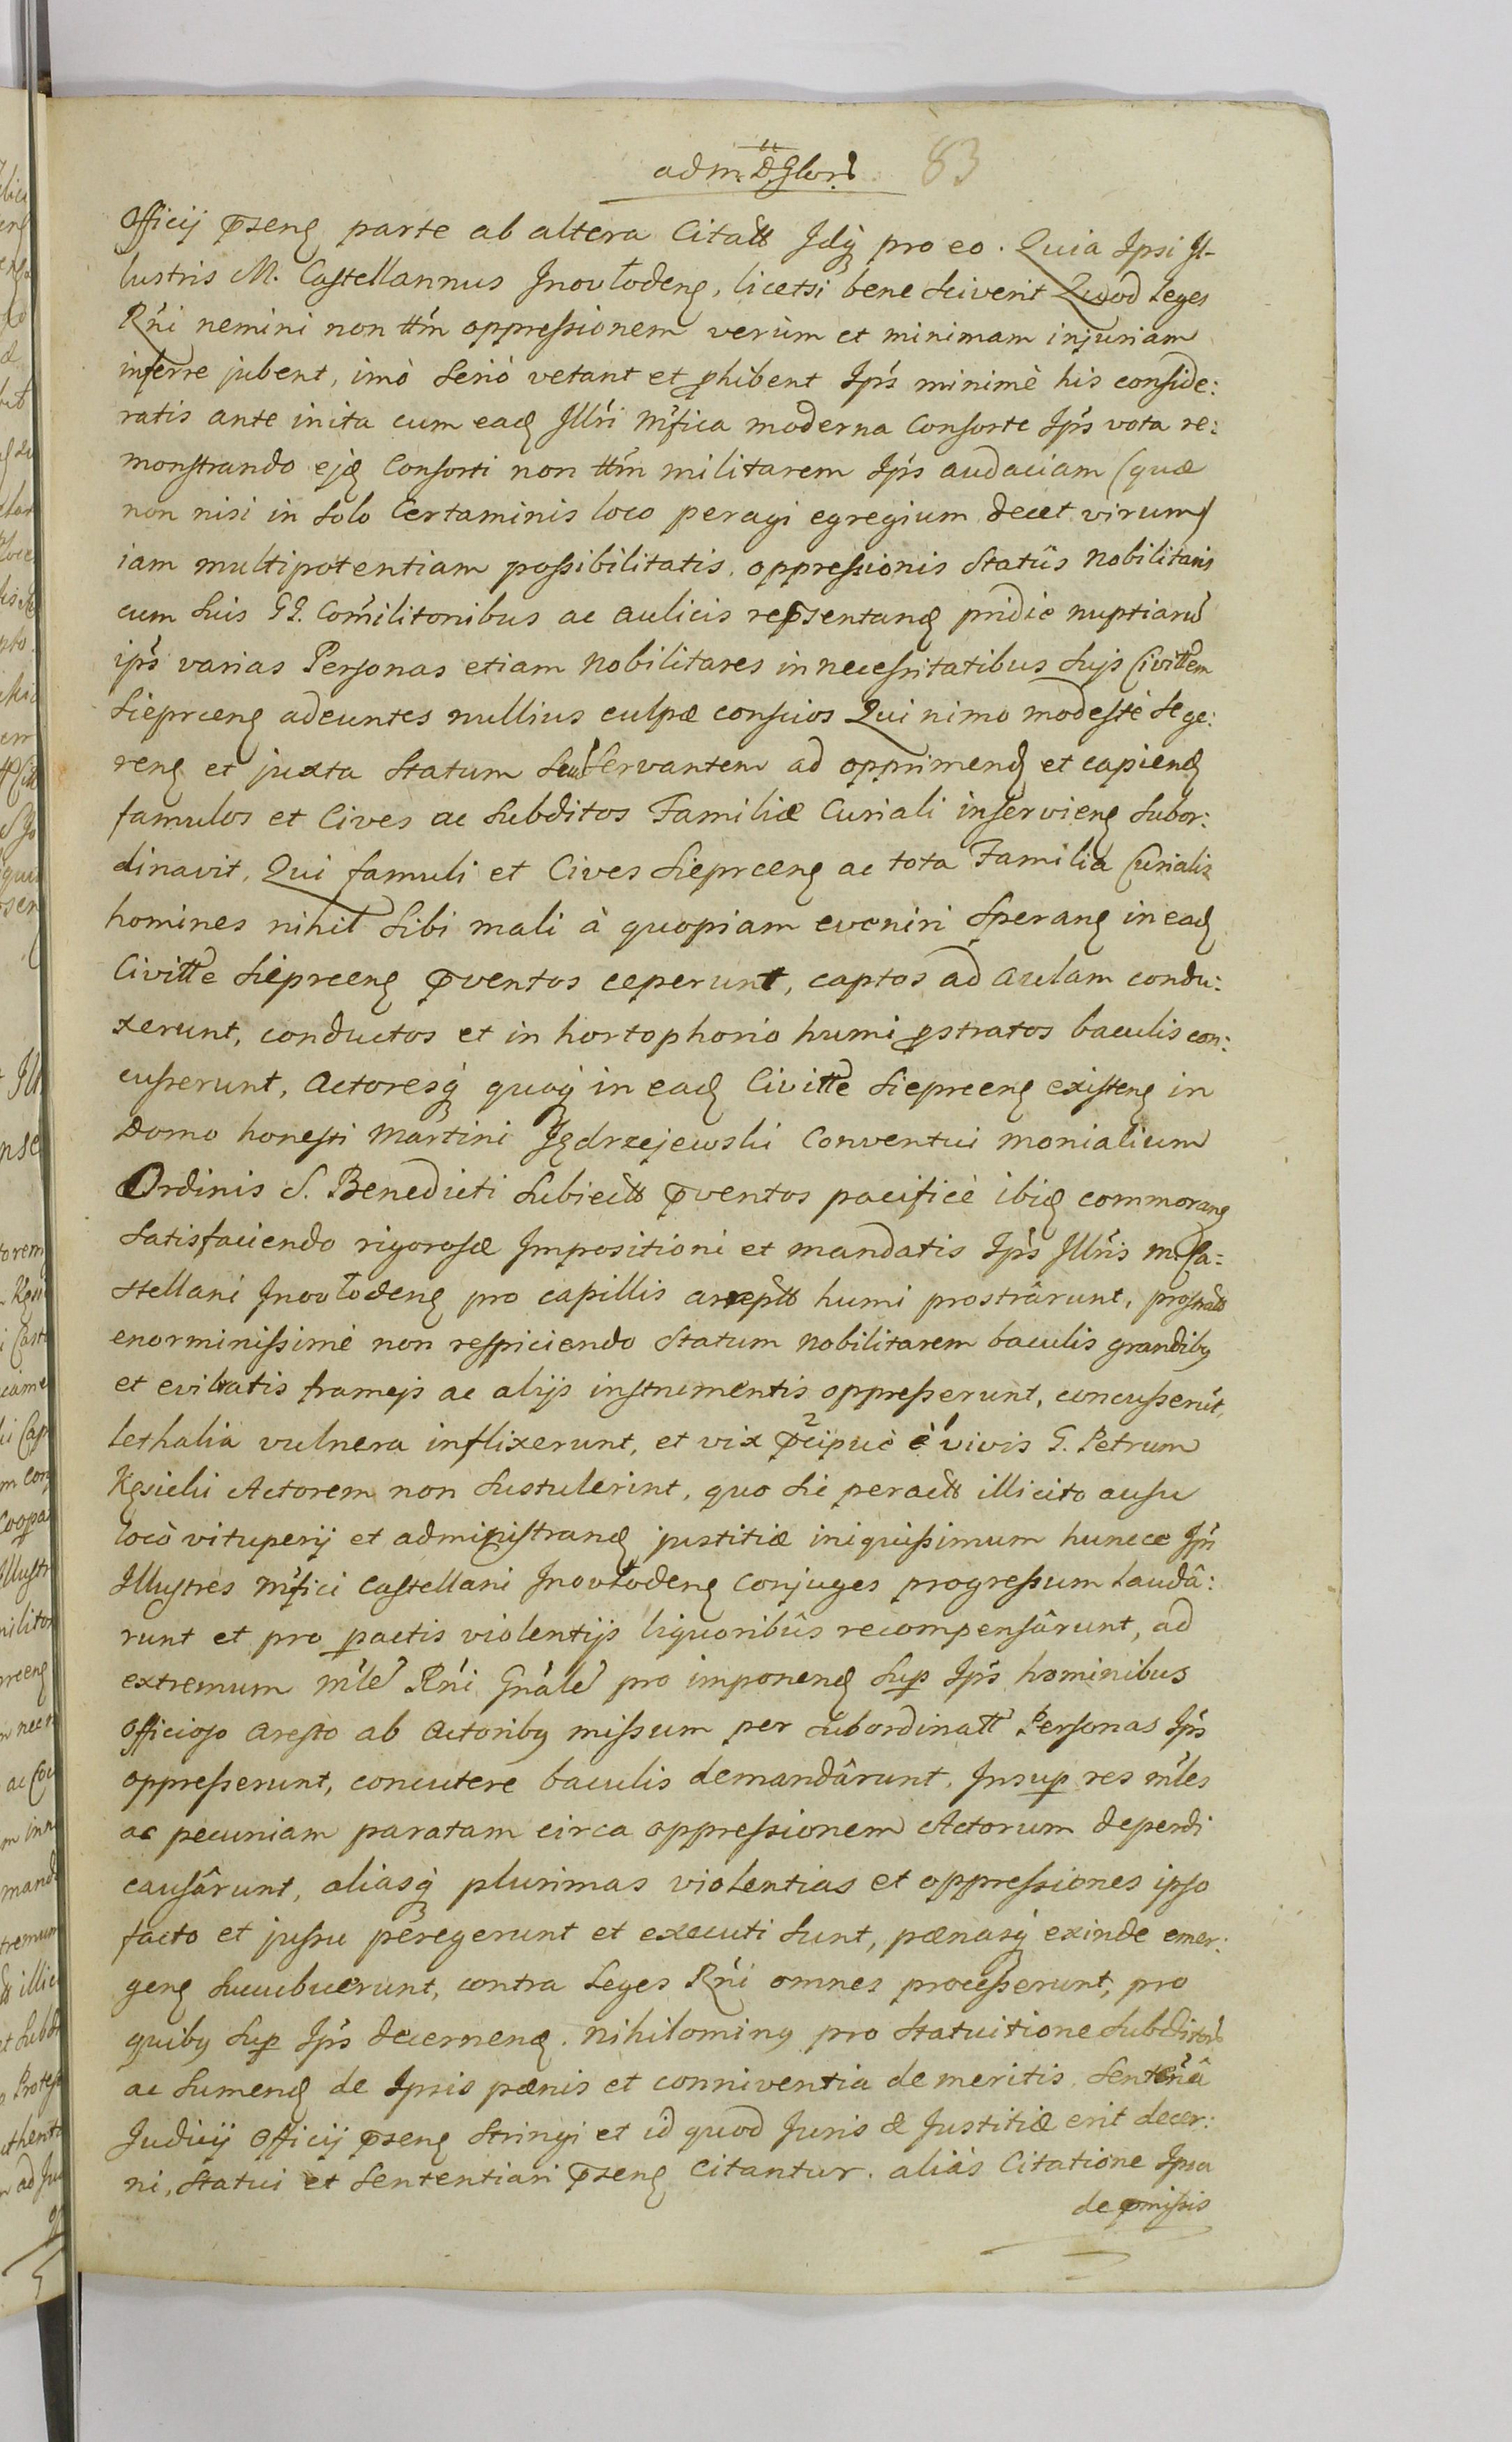 adm. D. Glor. 83
Officij p̄seng parte ab altera Citatt Jdq; pro eo. Quia Ipsi Il-
lustris M. Castellannus Jnovłodeng, licetsi bene sciverit Quod Leges
Rńi nemini non ttm̄ oppressionem verùm et minimam injuriam
inferre jubent, imò seriò vetant et p̱hibent Ipśs minimè his conside:
ratis ante inita cum eadg Jllŕi Mʼfica moderna Consorte Ipśs vota re:
monstrando ejg Consorti non ttm̄ militarem Ipśs audaciam (quæ
non nisi in solo Certaminis loco peragi egregium decet virum)
iam multipotentiam possibilitatis. oppressionis Statûs Nobilitaris
cum suis GG. Com̄ilitonibus ac aulicis rep̄sentang pridie nuptiarū
ipśs varias Personas etiam Nobilitares in necessitatibus sujs Civittem
Sieprceng adeuntes nullius culpæ conscios Qui nimo modestè se ge:
reng et juxta Statum suū servantem ad opprimendg et capiendg
famulos et Cives ac subditos Familiæ Curiali inservieng subor:
dinavit, Qui famuli et Cives Sieprceng ac tota Familia Curialis
homines nihil sibi mali à quopiam eveniri sperang in eadg
Civitte Sieprceng p̄ventos ceperunt, captos ad aulam condu:
xerunt, conductos et in hortophorio humi p̱stratos baculis con:
cusserunt, Actoresq; quoq; in eadg Civitte Sieprceng existeng in
Domo honesti Martini Jędrzejewski Conventui Monialium
Ordinis S. Benedicti subiectt p̄ventos pacificè ibidg commorang
satisfaciendo rigorosæ Jmpositioni et mandatis Ipśs Jllŕis M. Ca=
stellani Jnovłodeng pro capillis arreptt humi prostrârunt, prostratt
enorminissimè non respiciendo Statum Nobilitarem baculis grandiby
et evibratis framejs ac alijs instrumentis oppresserunt, concusserūt,
lethalia vulnera inflixerunt, et vix p̄cipuè è vivis G. Petrum
Kęsicki Actorem non sustulerint, quo sic peractt illicito ausu
locò vituperij et administrandg justitiæ iniquissimum huncce Ipśi
Jllustres Mʼfici Castellani Jnovłodeng Conjuges progressum laudâ:
runt et pro p̱actis violentijs liquoribûs recompensârunt, ad
extremum Mʼlē Rńi Gńālē pro imponendg sup̱ Ipśs hominibus
Officioso Aresto ab Actoriby missum per subordinatt Personas Ipśs
oppresserunt, concutere baculis demandârunt. Jnsup̱ res mʼles
ac pecuniam paratam circa oppressionem Actorum deperdi
causârunt, aliasq; plurimas violentias et oppressiones ipso
facto et jussu peregerunt et executi sunt, pænasq; exinde emer:
geng succubuerunt, contra Leges Rńi omnes processerunt, pro
quiby sup̱ Ipśs decerneng. Nihilominy pro Statuitione subditorū
ac sumendg de Ipsis pænis et conniventia demeritis. sentn̄â
Judicij Officij p̄seng Stringi et id quod Juris & Justitiæ erit decer:
ni, statui et sententiari p̄seng Citantur. aliàs Citatione Ipsa
de p̄missis